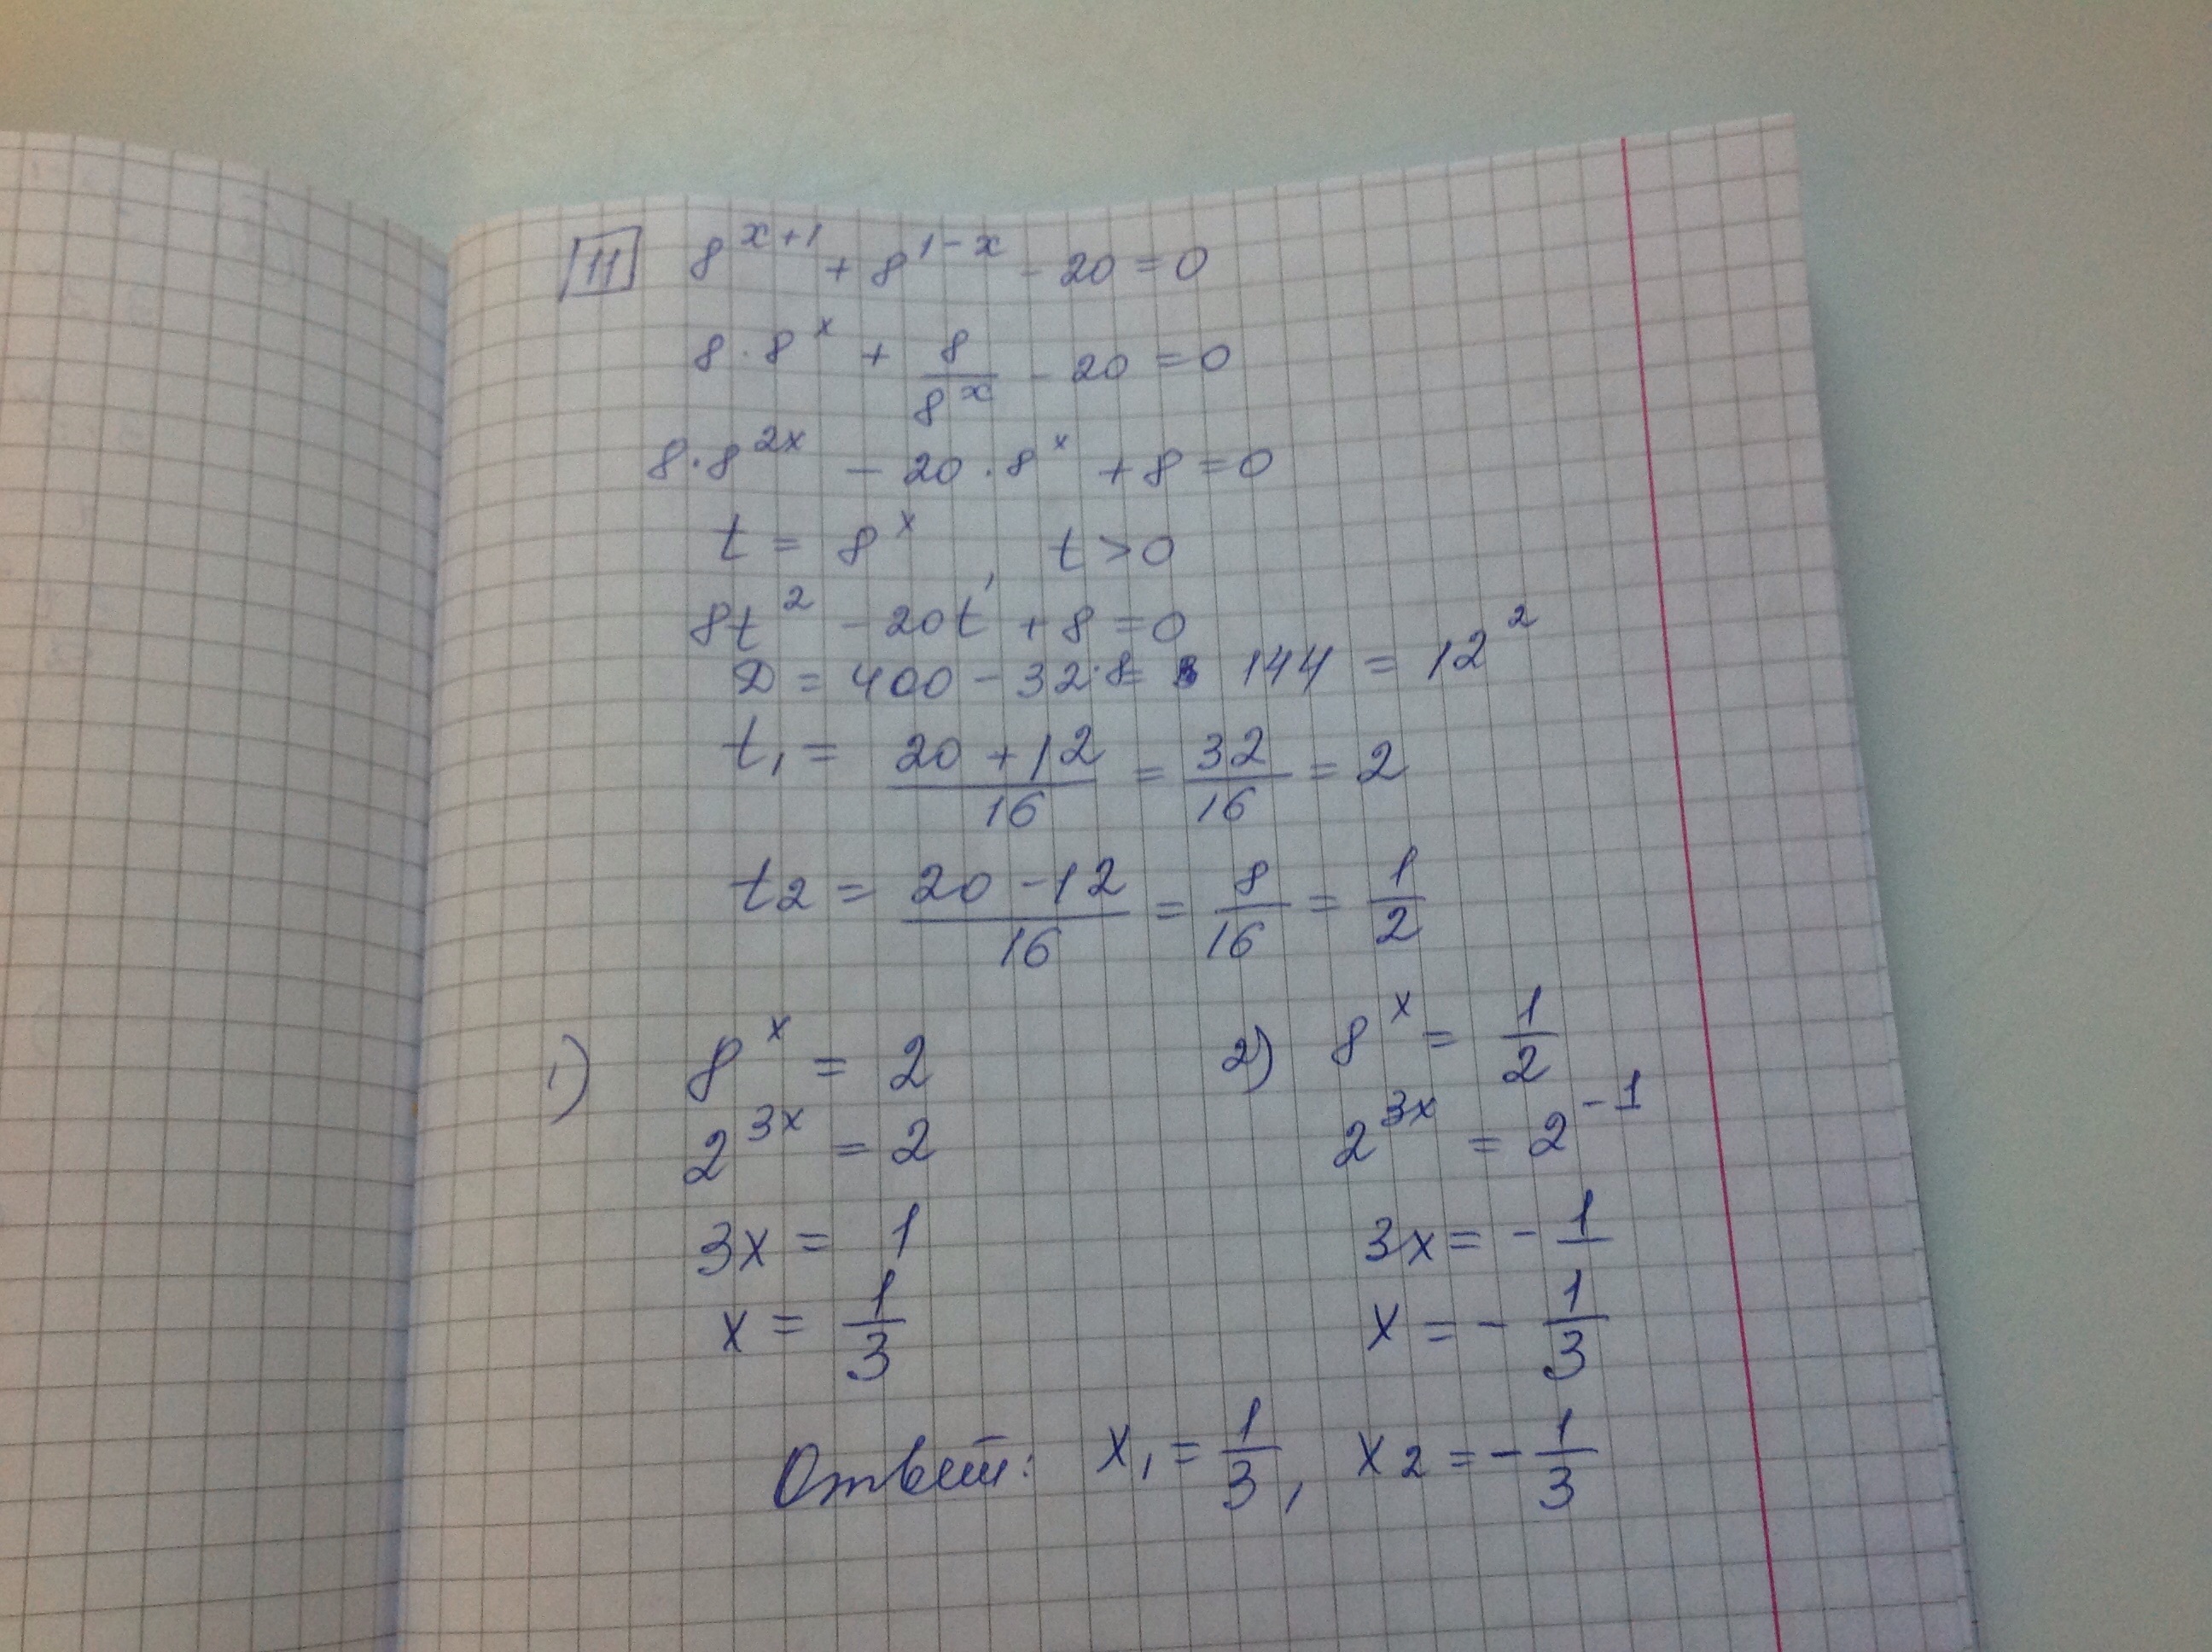 11 8^{x+1} + 8^{1-x} - 20 = 0
8 · 8^x + \frac{8}{8^x} - 20 = 0
8 · 8^{2x} - 20 · 8^x + 8 = 0
t = 8^x, t > 0
8t^2 - 20t + 8 = 0
D = 400 - 32·8 = 144 = 12^2
t_1 = \frac{20 + 12}{16} = \frac{32}{16} = 2
t_2 = \frac{20 - 12}{16} = \frac{8}{16} = \frac{1}{2}
1) 8^x = 2
2^{3x} = 2
3x = 1
x = \frac{1}{3}
2) 8^x = \frac{1}{2}
2^{3x} = 2^{-1}
3x = -1
x = -\frac{1}{3}
Ответ: x_1 = \frac{1}{3}, x_2 = -\frac{1}{3}